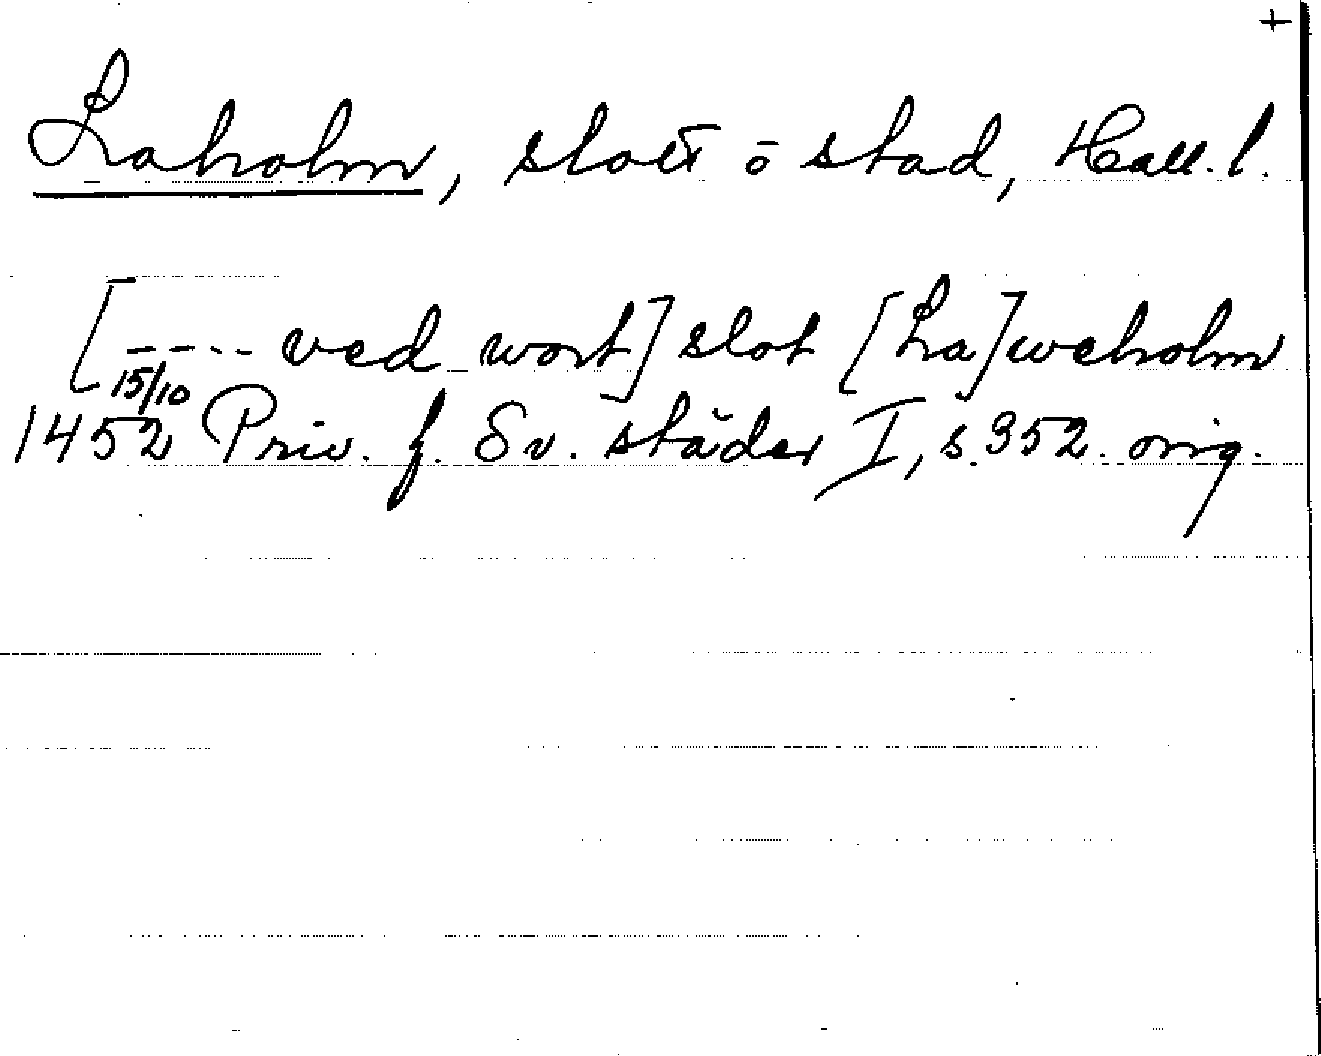 +
Laholm, slott o stad, Hall. l.
[---- ved wort] slot [La]weholm
15/10
1452 Priv. f. Sv. städer I, s. 352. orig.